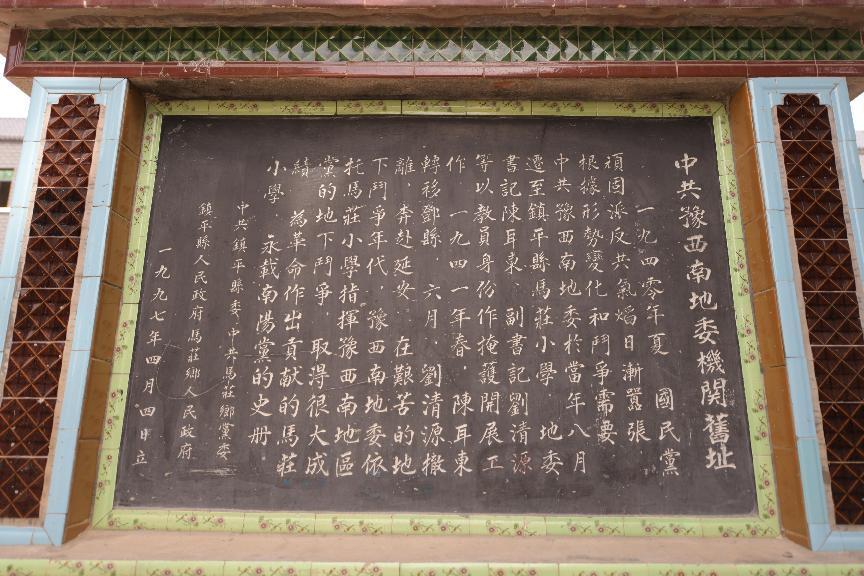 中共豫西南地委機關舊址
一九四零年夏 國民黨
頑固派反共氣焰日漸囂張
根據形勢變化和鬥爭需要
中共豫西南地委於當年八月
遷至鎮平縣馬莊小學．地委
書記陳耳東．副書記劉清源
等以教員身份作掩護開展工
作 一九四一年春．陳耳東
轉移鄧縣．六月．劉清源撤
離．奔赴延安．在艱苦的地
下鬥爭年代．豫西南地委依
托馬莊小學指揮豫西南地區
黨的地下鬥爭．取得很大成
績 為革命作出貢献的馬莊
小學．永載南陽黨的史册．
中共鎮平縣委 中共馬莊鄉黨委
鎮平縣人民政府 馬莊鄉人民政府
一九九七年四月四日立